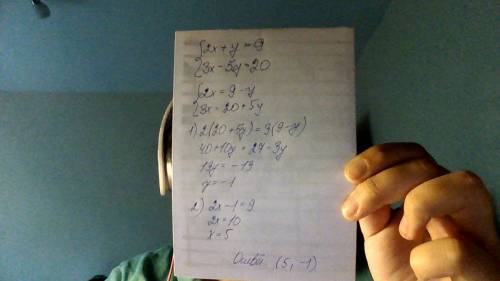 {2x + y = 9
{3x - 5y = 20
{2x = 9 - y
{3x = 20 + 5y
1) 2(20 + 5y) = 3(9 - y)
40 + 10y = 27 - 3y
13y = -13
y = -1
2) 2x - 1 = 9
2x = 10
x = 5
Ответ (5, -1)